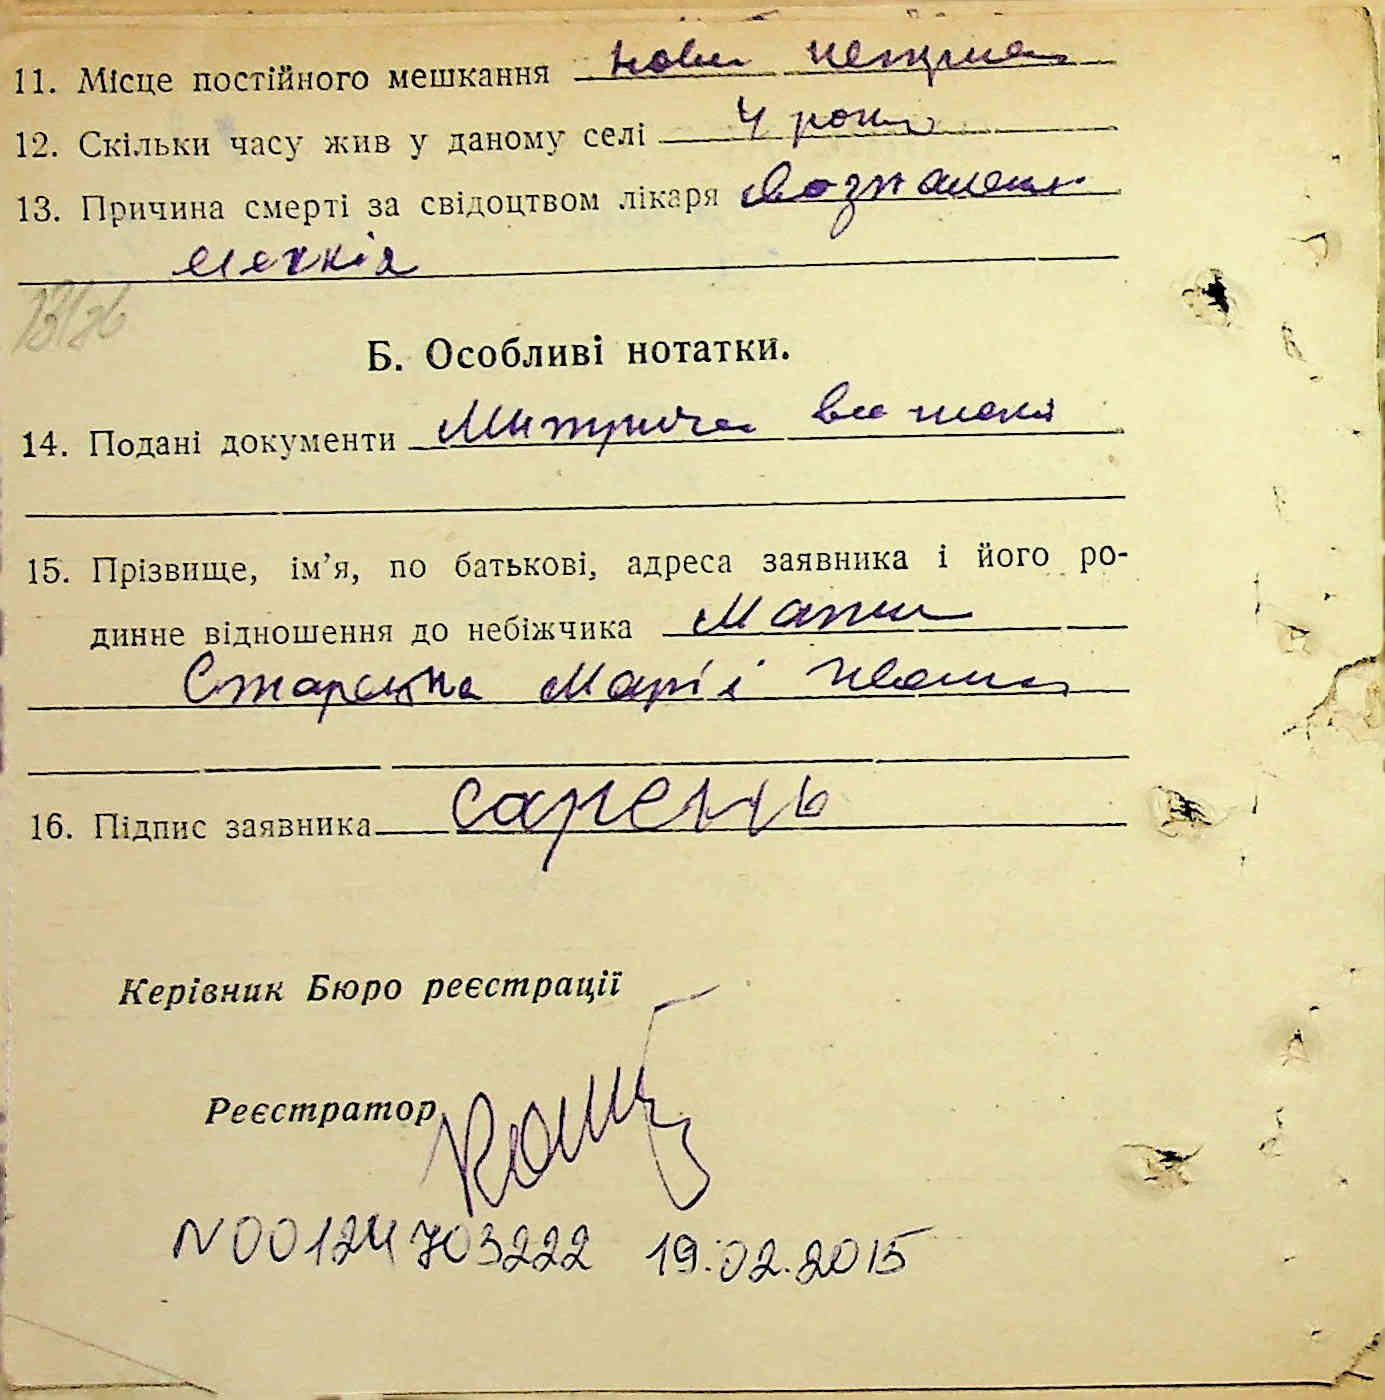 11. Місце постійного мешкання нови
12. Скільки часу жив у даному селі 4 роки
13. Причина смерті за свідоцтвом лікаря
легкія
Б. Особливі нотатки.
14. Подані документи Митрича
15. Прізвище, ім’я, по батькові, адреса заявника і його ро-
динне відношення до небіжчика Мати
Марія
16. Підпис заявника
Керівник Бюро реєстрації
Реєстратор
N00124703222 19.02.2015